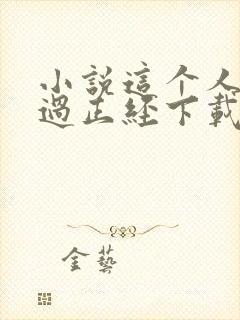 小說這个人
過正經下載
金藝